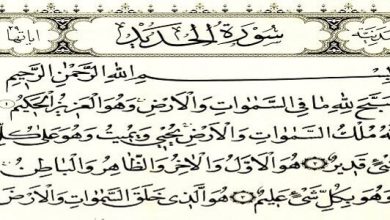 سُورَةُ الْحَدِيدِ اياتها
بِسْمِ اللهِ الرَّحْمٰنِ الرَّحِيمِ
سَبَّحَ لِلّٰهِ مَا فِى السَّمٰوَاتِ وَالْاَرْضِ وَهُوَ الْعَزِيزُ الْحَكِيمُ ۝
لَهُ مُلْكُ السَّمٰوَاتِ وَالْاَرْضِ يُحْيٖ وَيُمِيتُ وَهُوَ عَلٰى كُلِّ
شَىْءٍ قَدِيرٌ ۝ هُوَ الْاَوَّلُ وَالْاٰخِرُ وَالظَّاهِرُ وَالْبَاطِنُ
وَهُوَ بِكُلِّ شَىْءٍ عَلِيمٌ ۝ هُوَ الَّذٖى خَلَقَ السَّمٰوَاتِ وَالْاَرْضَ